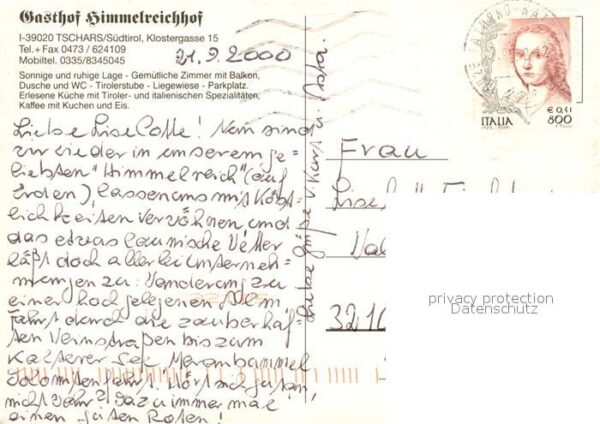 Gasthof Himmelreichhof
I-39020 TSCHARS/Südtirol, Klostergasse 15
Tel. + Fax 0473 / 624109
Mobiltel. 0335/8345045
21.9.2000
Sonnige und ruhige Lage - Gemütliche Zimmer mit Balkon,
Dusche und WC - Tirolerstube - Liegewiese - Parkplatz.
Erlesene Küche mit Tiroler- und italienischen Spezialitäten,
Kaffee mit Kuchen und Eis.
Liebe Liselotte! Nun sind
wir wieder in unserem ge-
liebten "Himmelreich" (auf
Erden), lassen uns mit Köst-
lichkeiten verwöhnen, und
das etwas launische Wetter
läßt doch allerlei Unterneh-
mungen zu: Wanderung zu
einer hoch gelegenen Alm
Fahrt durch die zauberhaf-
ten Weinstraßen bis zum
Kalterer See, Meranbummel
Dolomitenfahrt. Hört sich gut an,
nicht wahr? Dazu immer mal
einen guten Roten!
Liebe Grüße v. Kurt u.
€ 0,41
ITALIA 800
Frau
32
privacy protection
Datenschutz